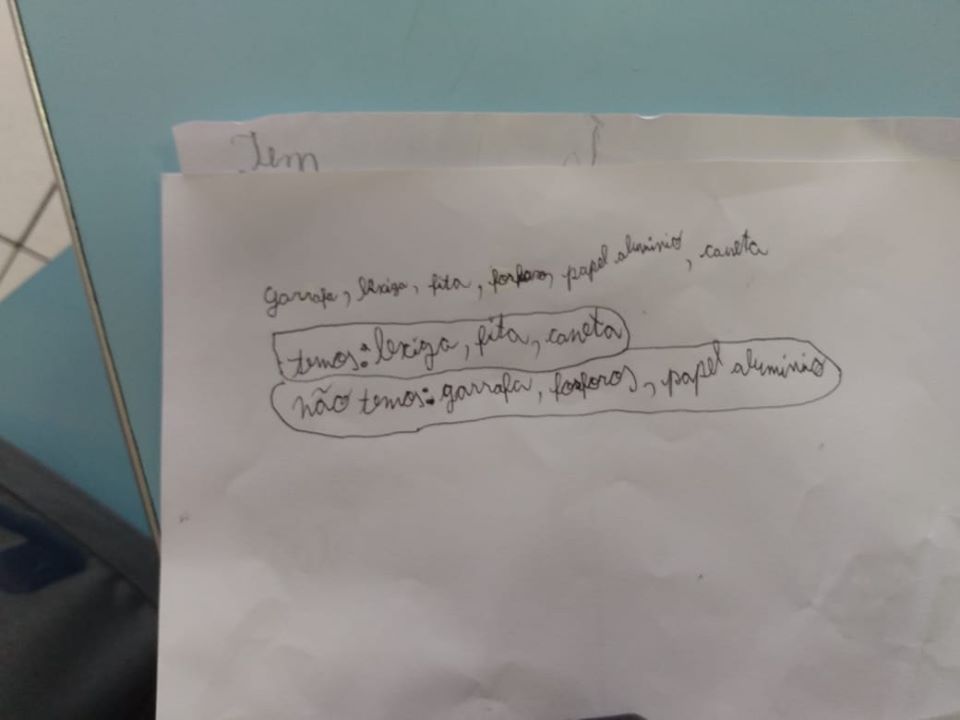 Tem
garrafa, bexiga, fita, fosforos, papel aluminio, caneta
temos: bexiga, fita, caneta
não temos: garrafa, fosforos, papel aluminio